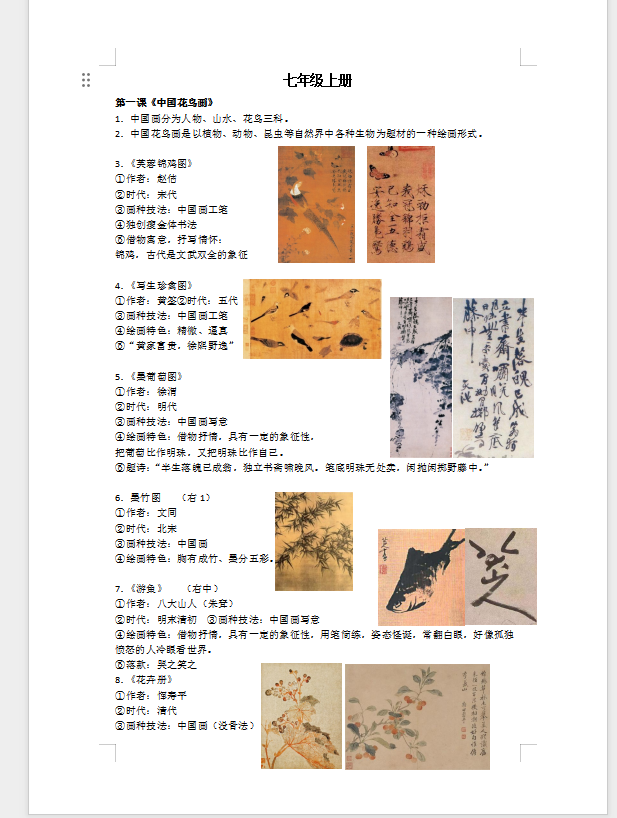 七年级上册
第一课《中国花鸟画》
1. 中国画分为人物、山水、花鸟三科。
2. 中国花鸟画是以植物、动物、昆虫等自然界中各种生物为题材的一种绘画形式。
3.《芙蓉锦鸡图》
①作者：赵佶
②时代：宋代
③画种技法：中国画工笔
④独创瘦金体书法
⑤借物寓意，抒写情怀：
锦鸡，古代是文武双全的象征
4.《写生珍禽图》
①作者：黄筌②时代：五代
③画种技法：中国画工笔
④绘画特色：精微、逼真
⑤“黄家富贵，徐熙野逸”
5.《墨葡萄图》
①作者：徐渭
②时代：明代
③画种技法：中国画写意
④绘画特色：借物抒情，具有一定的象征性，
把葡萄比作明珠，又把明珠比作自己。
⑤题诗：“半生落魄已成翁，独立书斋啸晚风。笔底明珠无处卖，闲抛闲掷野藤中。”
6. 墨竹图 （右1）
①作者：文同
②时代：北宋
③画种技法：中国画
④绘画特色：胸有成竹、墨分五彩。
7.《游鱼》 （右中）
①作者：八大山人（朱耷）
②时代：明末清初 ③画种技法：中国画写意
④绘画特色：借物抒情，具有一定的象征性，用笔简练，姿态怪诞，常翻白眼，好像孤独
愤怒的人冷眼看世界。
⑤落款：哭之笑之
8.《花卉册》
①作者：恽寿平
②时代：清代
③画种技法：中国画（没骨法）